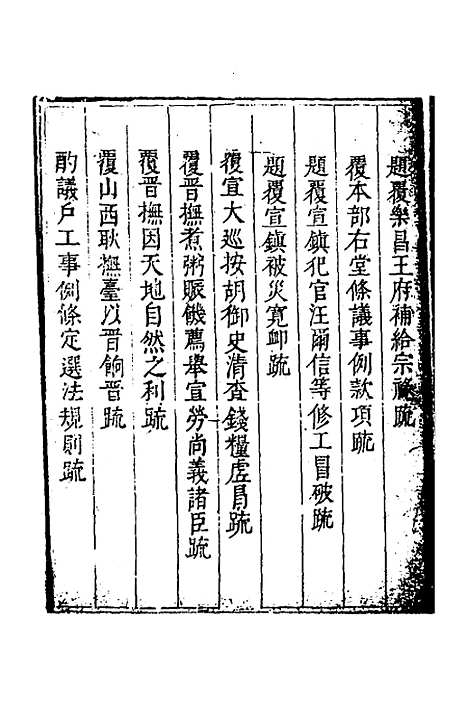 題覆樂昌王府補給宗祿疏
覆本部右堂條議事例款項疏
題覆宣鎮犯官汪爾信等修工冒破疏
題覆宣鎮被災寬卹疏
覆宣大巡按胡御史清查錢糧虛冒疏
覆晉撫煮粥賑饑薦舉宣勞尚義諸臣疏
覆晉撫因天地自然之利疏
覆山西耿撫臺以晉餉晉疏
酌議戶工事例條定選法規則疏